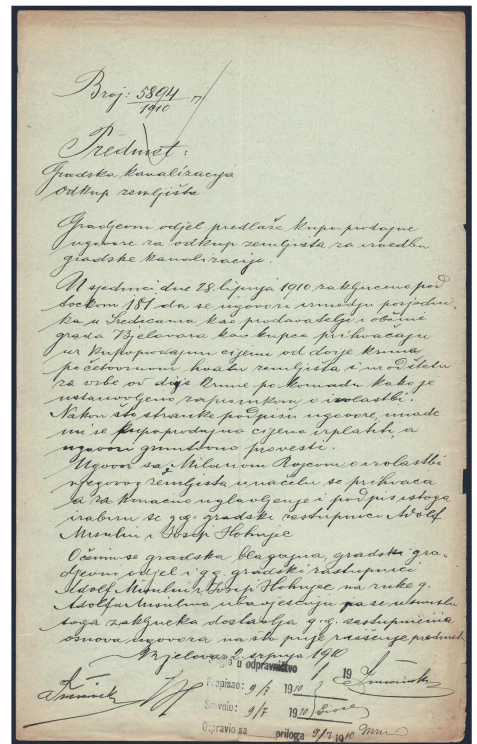 Broj: 5894
1910
Predmet:
Gradska kanalizacija
odkup zemljišta
Gradjevni odjel predlaže kupo-prodajne
ugovore za odkup zemljišta za izvedbu
gradske kanalizacije.
U sjednici dne 28. lipnja 1910 zaključeno pod
točkom 181 da se ugovori izmedju posjedni-
ka u Sredicama kao prodavatelja i obćine
grada Bjelovara kao kupca prihvaćaju
uz kupoprodajnu cijenu od dvije krune
po četvornom hvatu zemljišta i uz odštetu
za vrbe od dvije krune po komadu kako je
ustanovljeno zapisnikom o izvlastbi.
Nakon što stranke podpišu ugovore, imade
im se kupoprodajna cijena izplatiti, a
ugovori gruntovno provesti.
Ugovor sa Milanom Rojcom o izvlastbi
njegovog zemljišta u načelu se prihvaća
a za konačno uglavljenje i podpis istoga
izabiru se g.g. gradski zastupnici Adolf
Musulin i Josip Hohnjec
O čemu se gradska blagajna, gradski gra-
djevni odjel i gg. gradski zastupnici
Adolf Musulin i Josip Hohnjec na ruke g.
Adolfa Musulina uz dostavu pa se u smislu
toga zaključka dostavlja g.g. zastupnicima
osnova ugovora našto prije riešenje predmeta
Bjelovar 2. srpnja 1910
u odpravničtvo 19
Prepisao: 9/7 1910
Sravnio: 9/7 1910
Odpravio sa priloga 9/7 1910